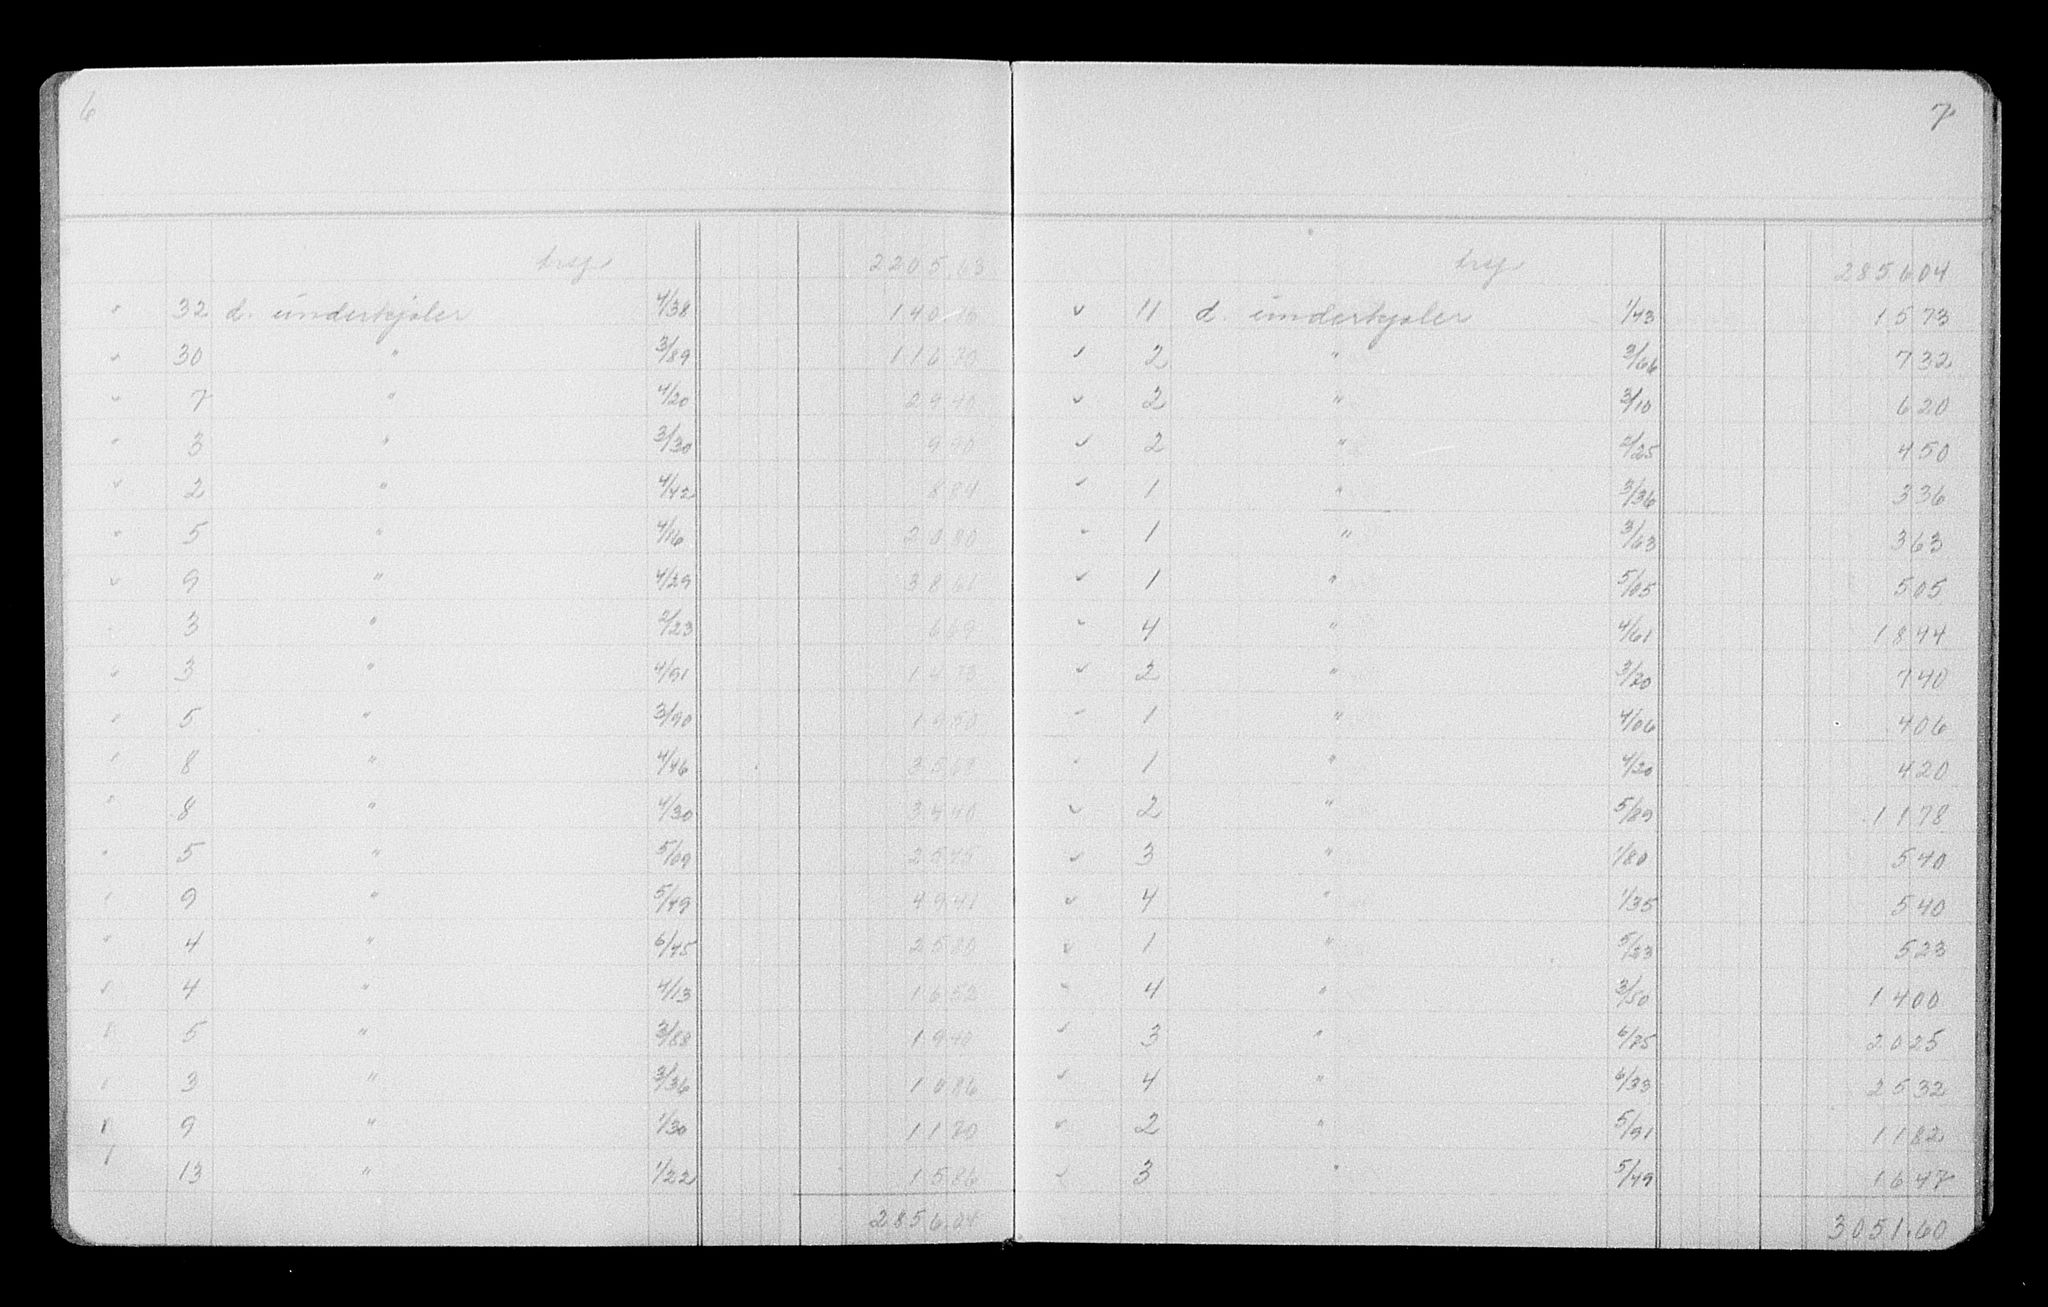 6
trsp. 2205.63
" 32 d. underkjoler 4/38 140 16
" 30 " 3/89 116 70
" 7 " 4/20 29 40
" 3 " 3/30 9 90
" 2 " 4/42 8 84
" 5 " 4/16 20 80
" 9 " 4/29 38 61
3 " 2/23 6 69
" 3 " 4/91 14 73
" 5 " 3/90 19 50
" 8 " 4/46 35 68
" 8 " 4/30 34 40
" 5 " 5/09 25 45
" 9 " 5/49 49 41
" 4 " 6/45 25 80
" 4 " 4/13 16 52
" 5 " 3/88 19 40
" 3 " 3/36 10 86
" 9 " 1/30 11 70
" 13 " 1/22 15 86
2856.04
7
trsp. 2856 04
" 11 d. underkjoler 1/43 15 73
" 2 " 3/66 7 32
" 2 " 3/10 6 20
" 2 " 2/25 4 50
" 1 " 3/36 3 36
" 1 " 3/63 3 63
" 1 " 5/05 5 05
" 4 " 4/61 18 44
" 2 " 3/70 7 40
" 1 " 4/06 4 06
" 1 " 4/20 4 20
" 2 " 5/89 11 78
" 3 " 1/80 5 40
" 4 " 1/35 5 40
" 1 " 5/23 5 23
" 4 " 3/50 14 00
" 3 " 6/75 20 25
" 4 " 6/33 25 32
" 2 " 5/91 11 82
" 3 " 5/49 16 47
3051.60